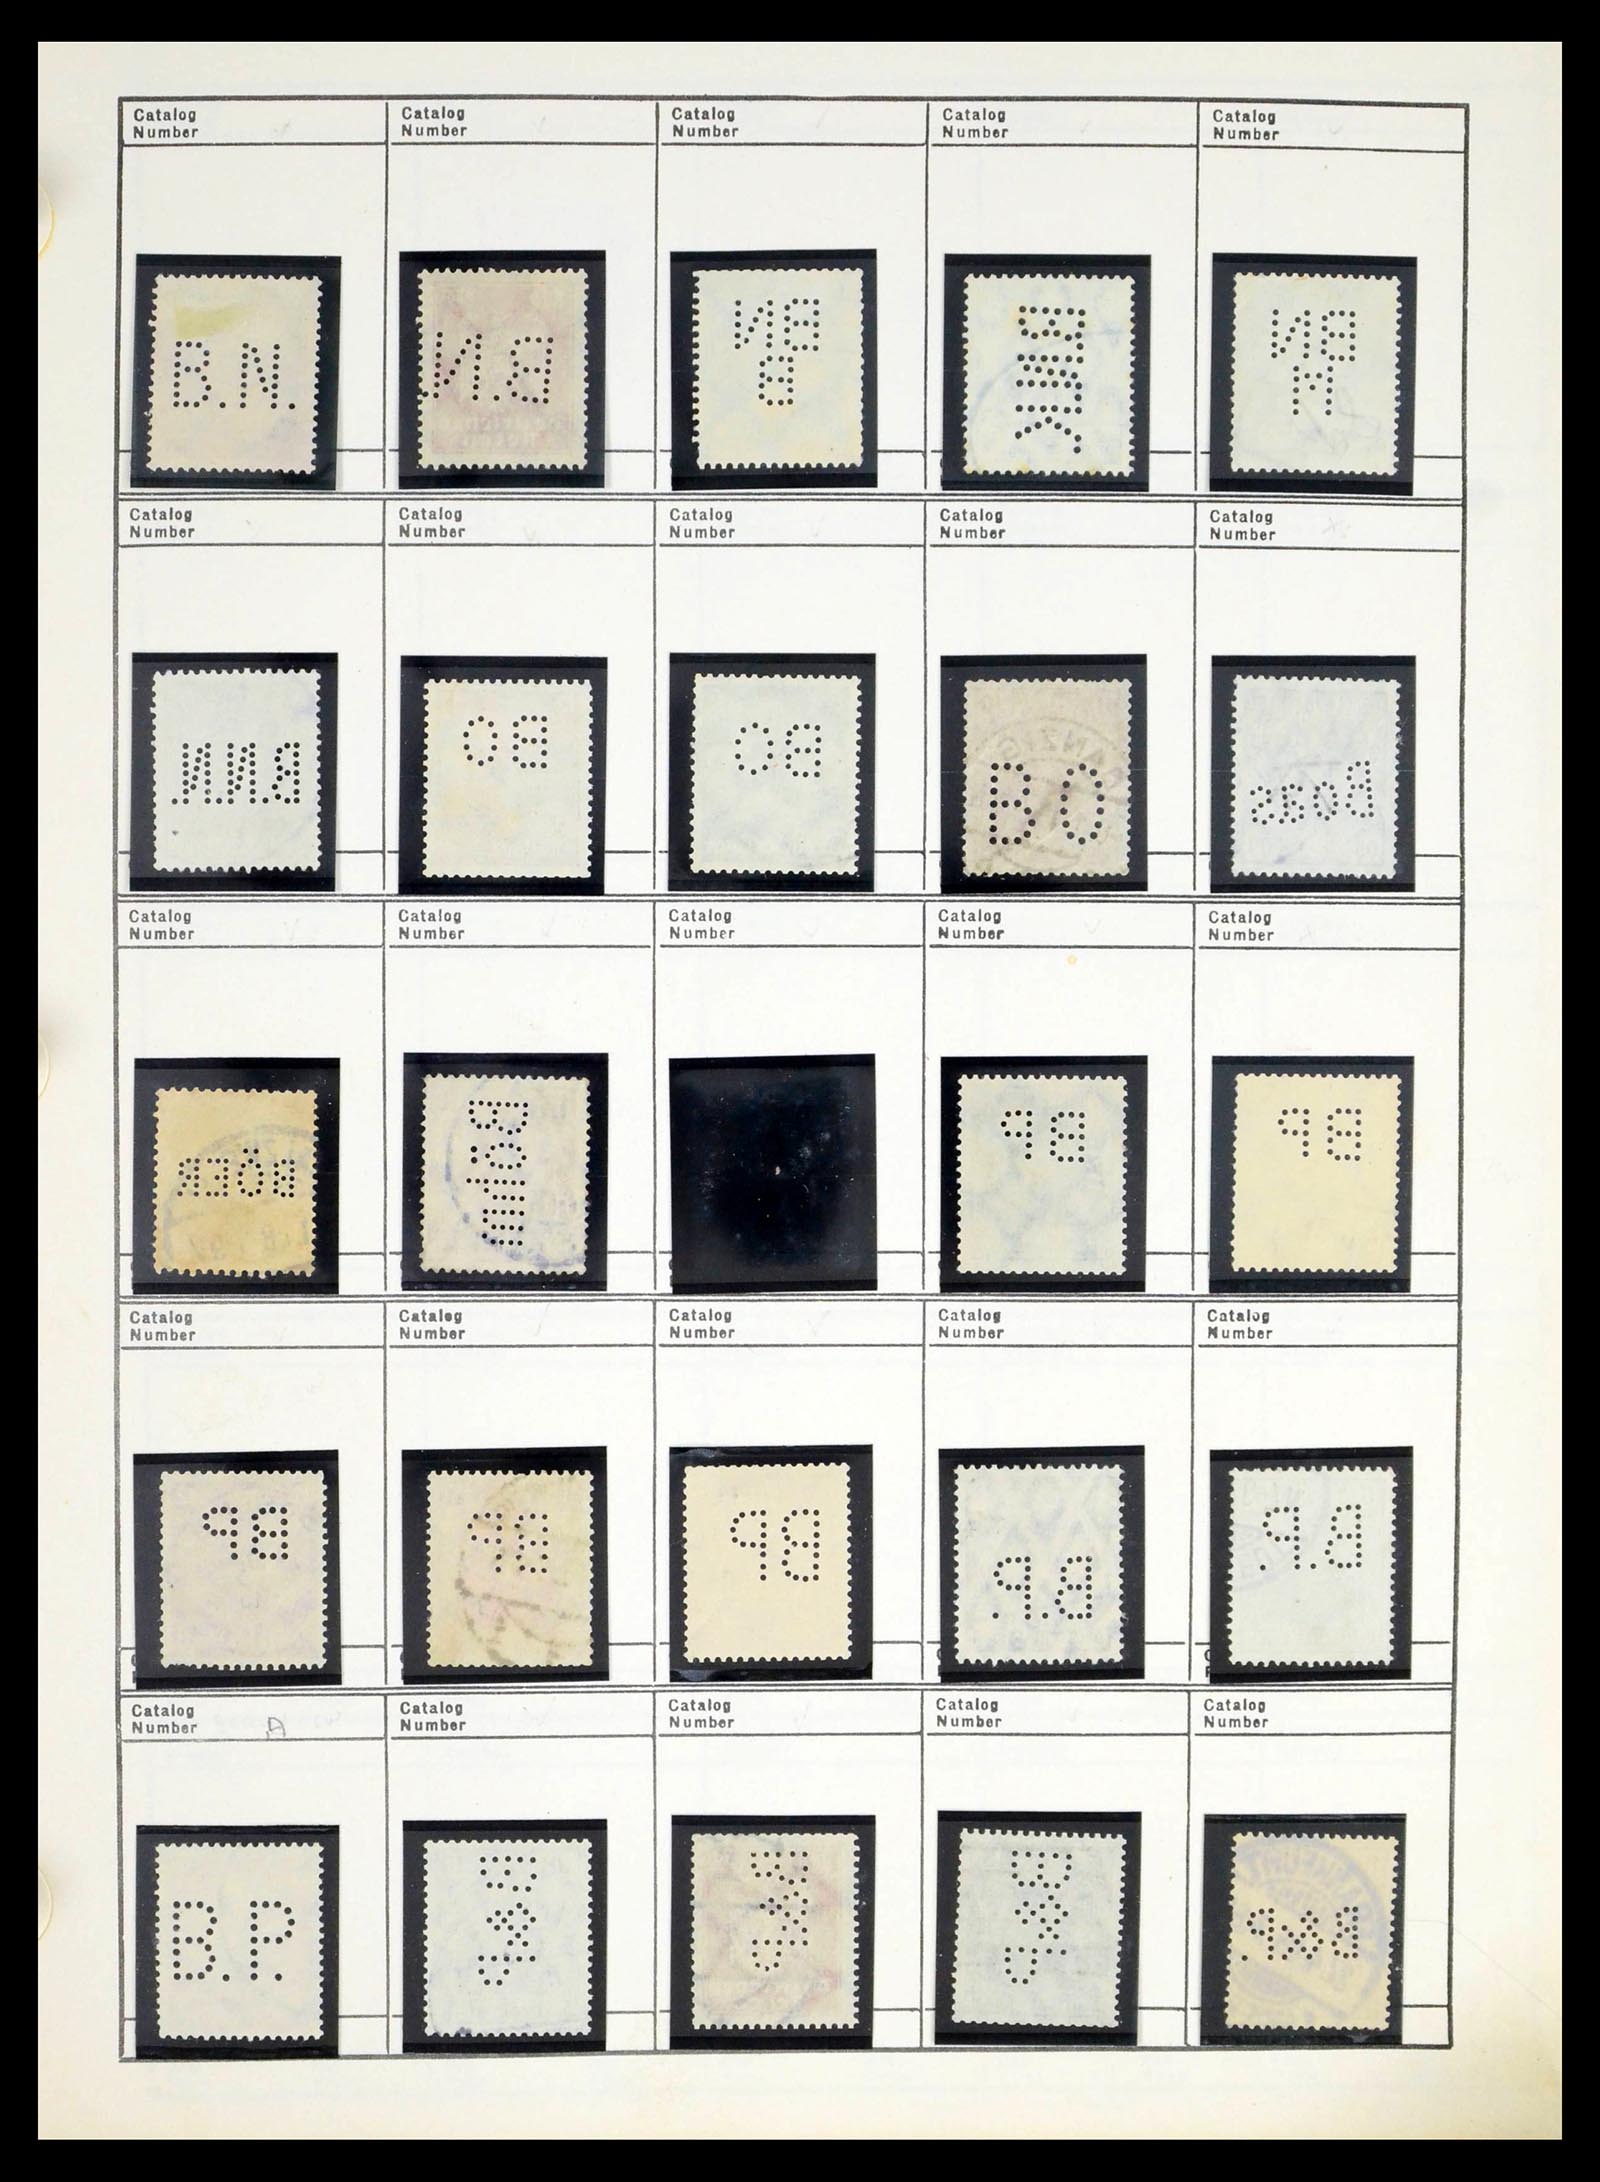 Catalog Number Catalog Number Catalog Number Catalog Number Catalog Number
B.N. B.N. BN BWK BN
B M
Catalog Number Catalog Number Catalog Number Catalog Number Catalog Number
B.N.N. BO BO BO Boas
Catalog Number Catalog Number Catalog Number Catalog Number Catalog Number
BÖER Bohm BP BP
Catalog Number Catalog Number Catalog Number Catalog Number Catalog Number
BP BP BP B.P. B.P.
Catalog Number A Catalog Number Catalog Number Catalog Number Catalog Number
B.P. B&C B&C B&C B&P